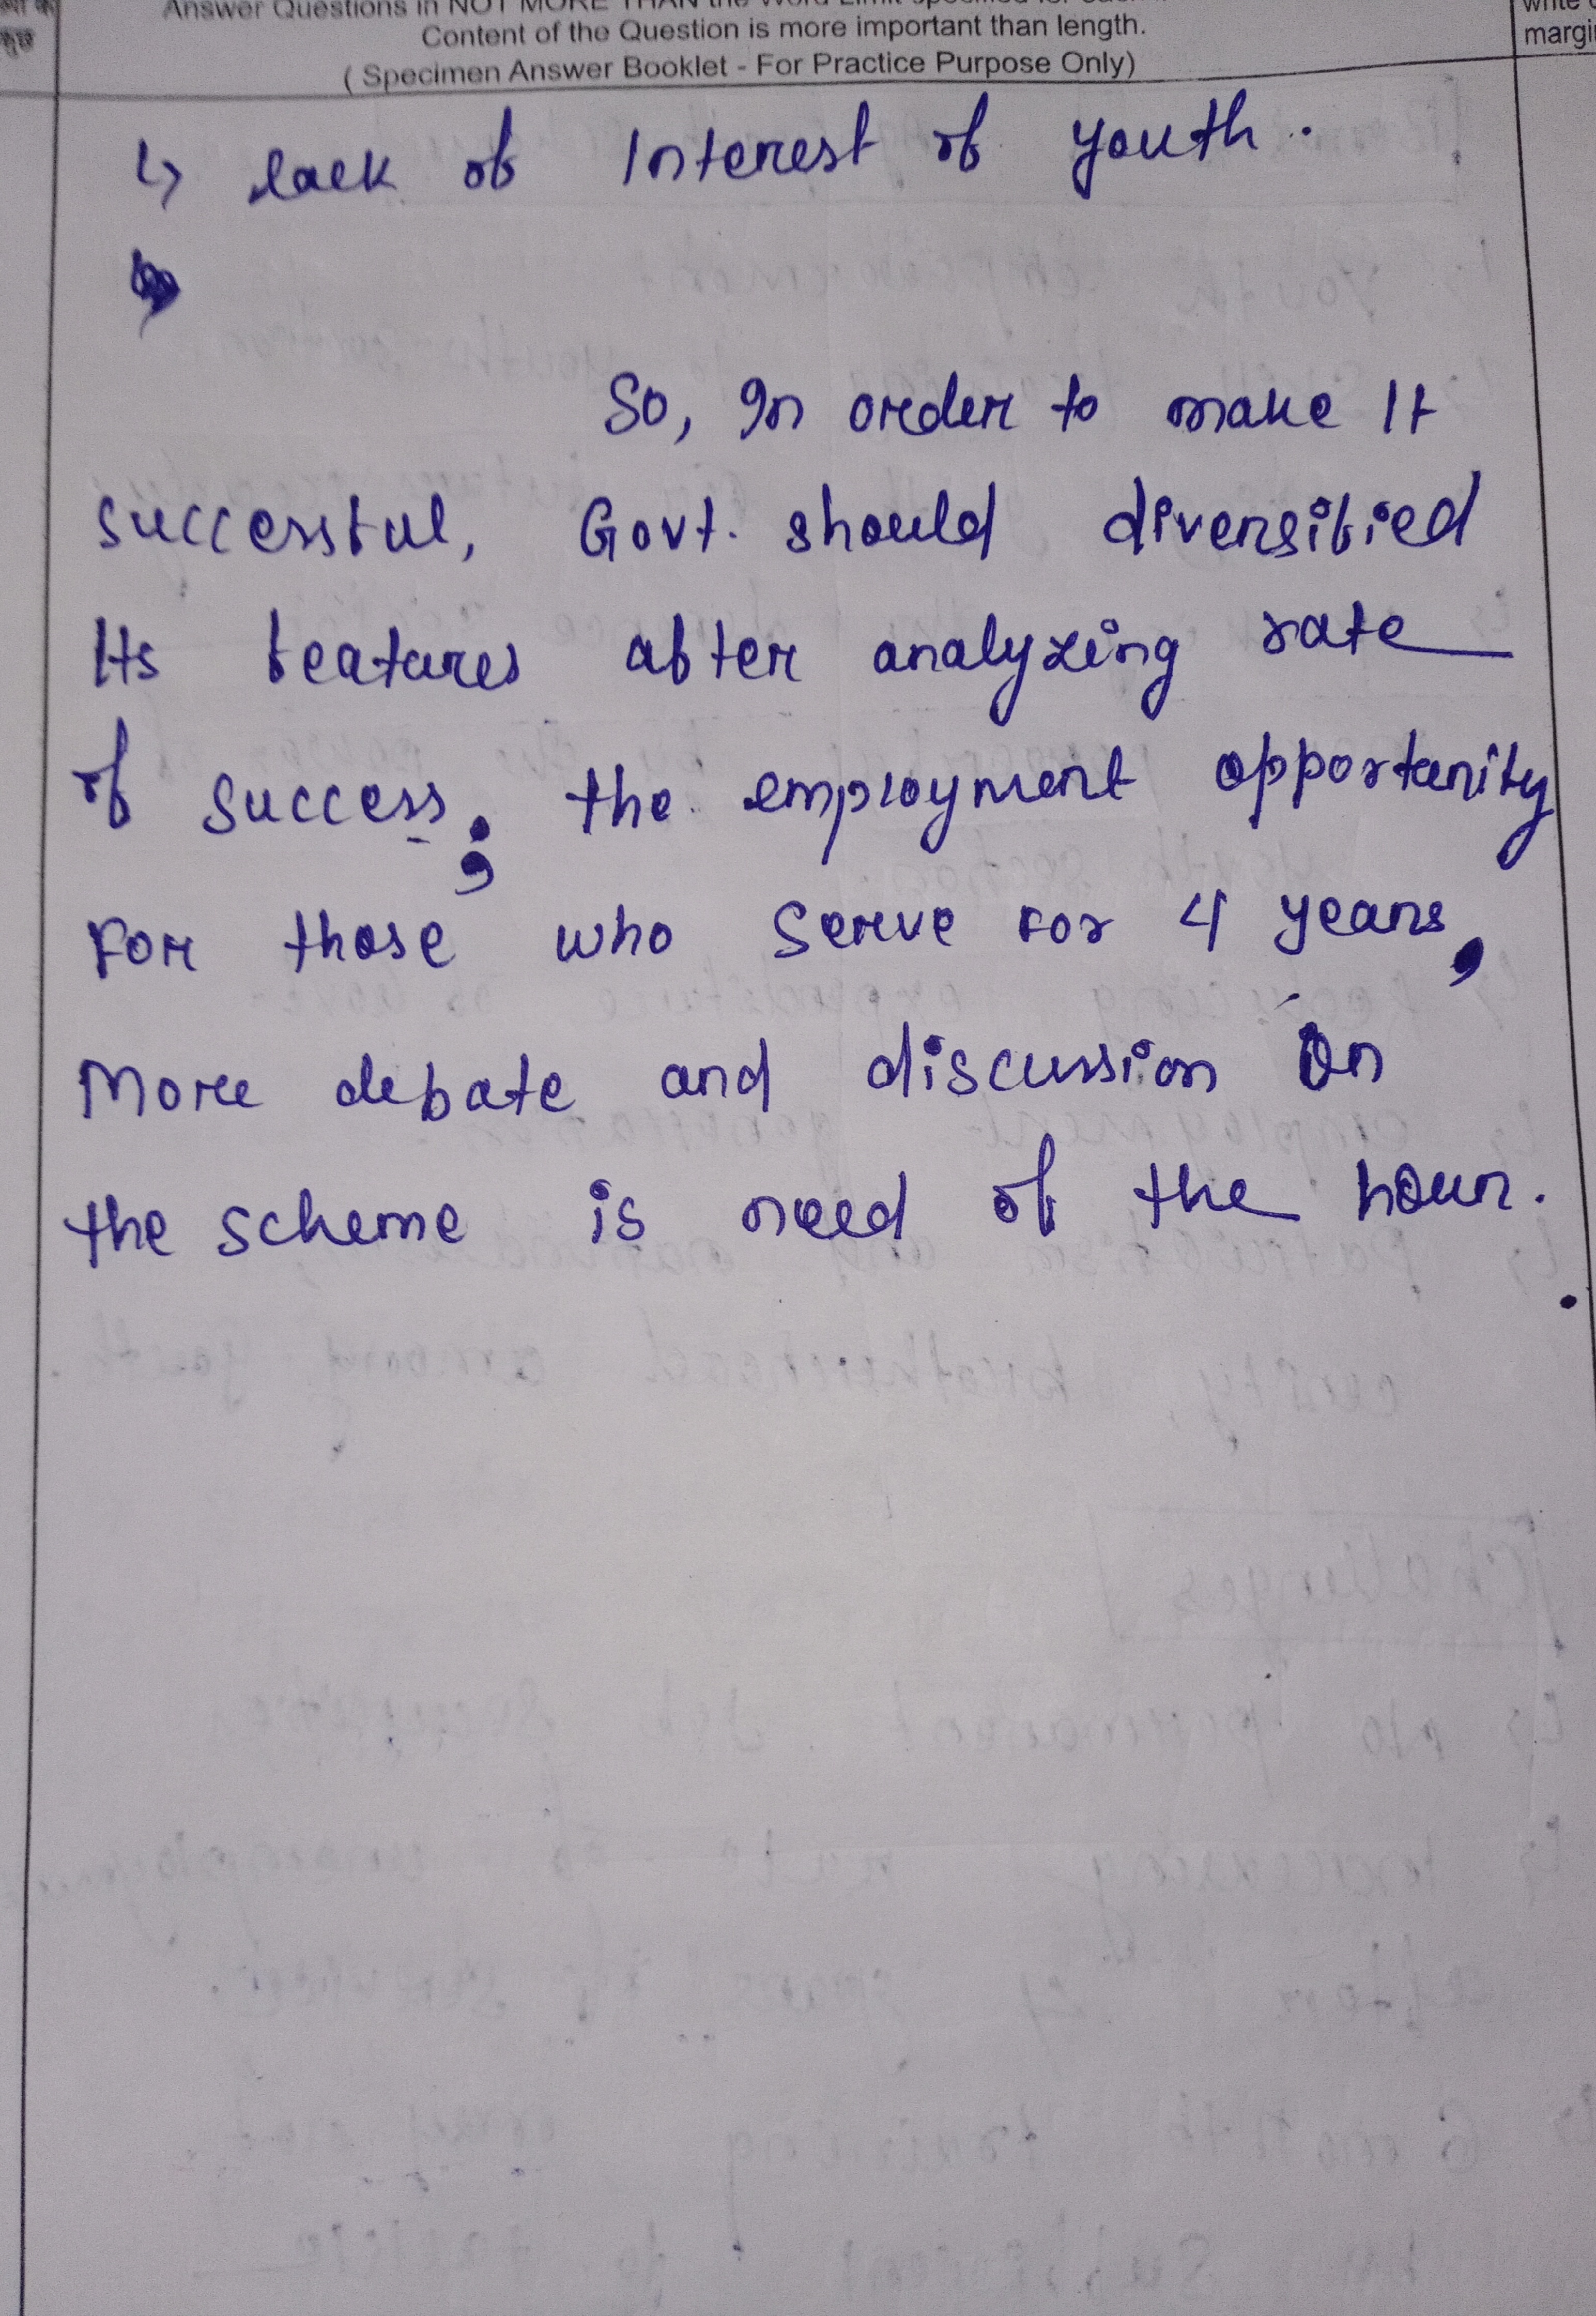 Content of the Question is more important than length.
( Specimen Answer Booklet - For Practice Purpose Only)
margi
↳ lack of Interest of youth.
So, In order to make It
successful, Govt. should diversified
Its features after analyzing rate
of success, the employment opportunity
For those who serve for 4 years,
More debate and discussion on
the scheme is need of the hour.